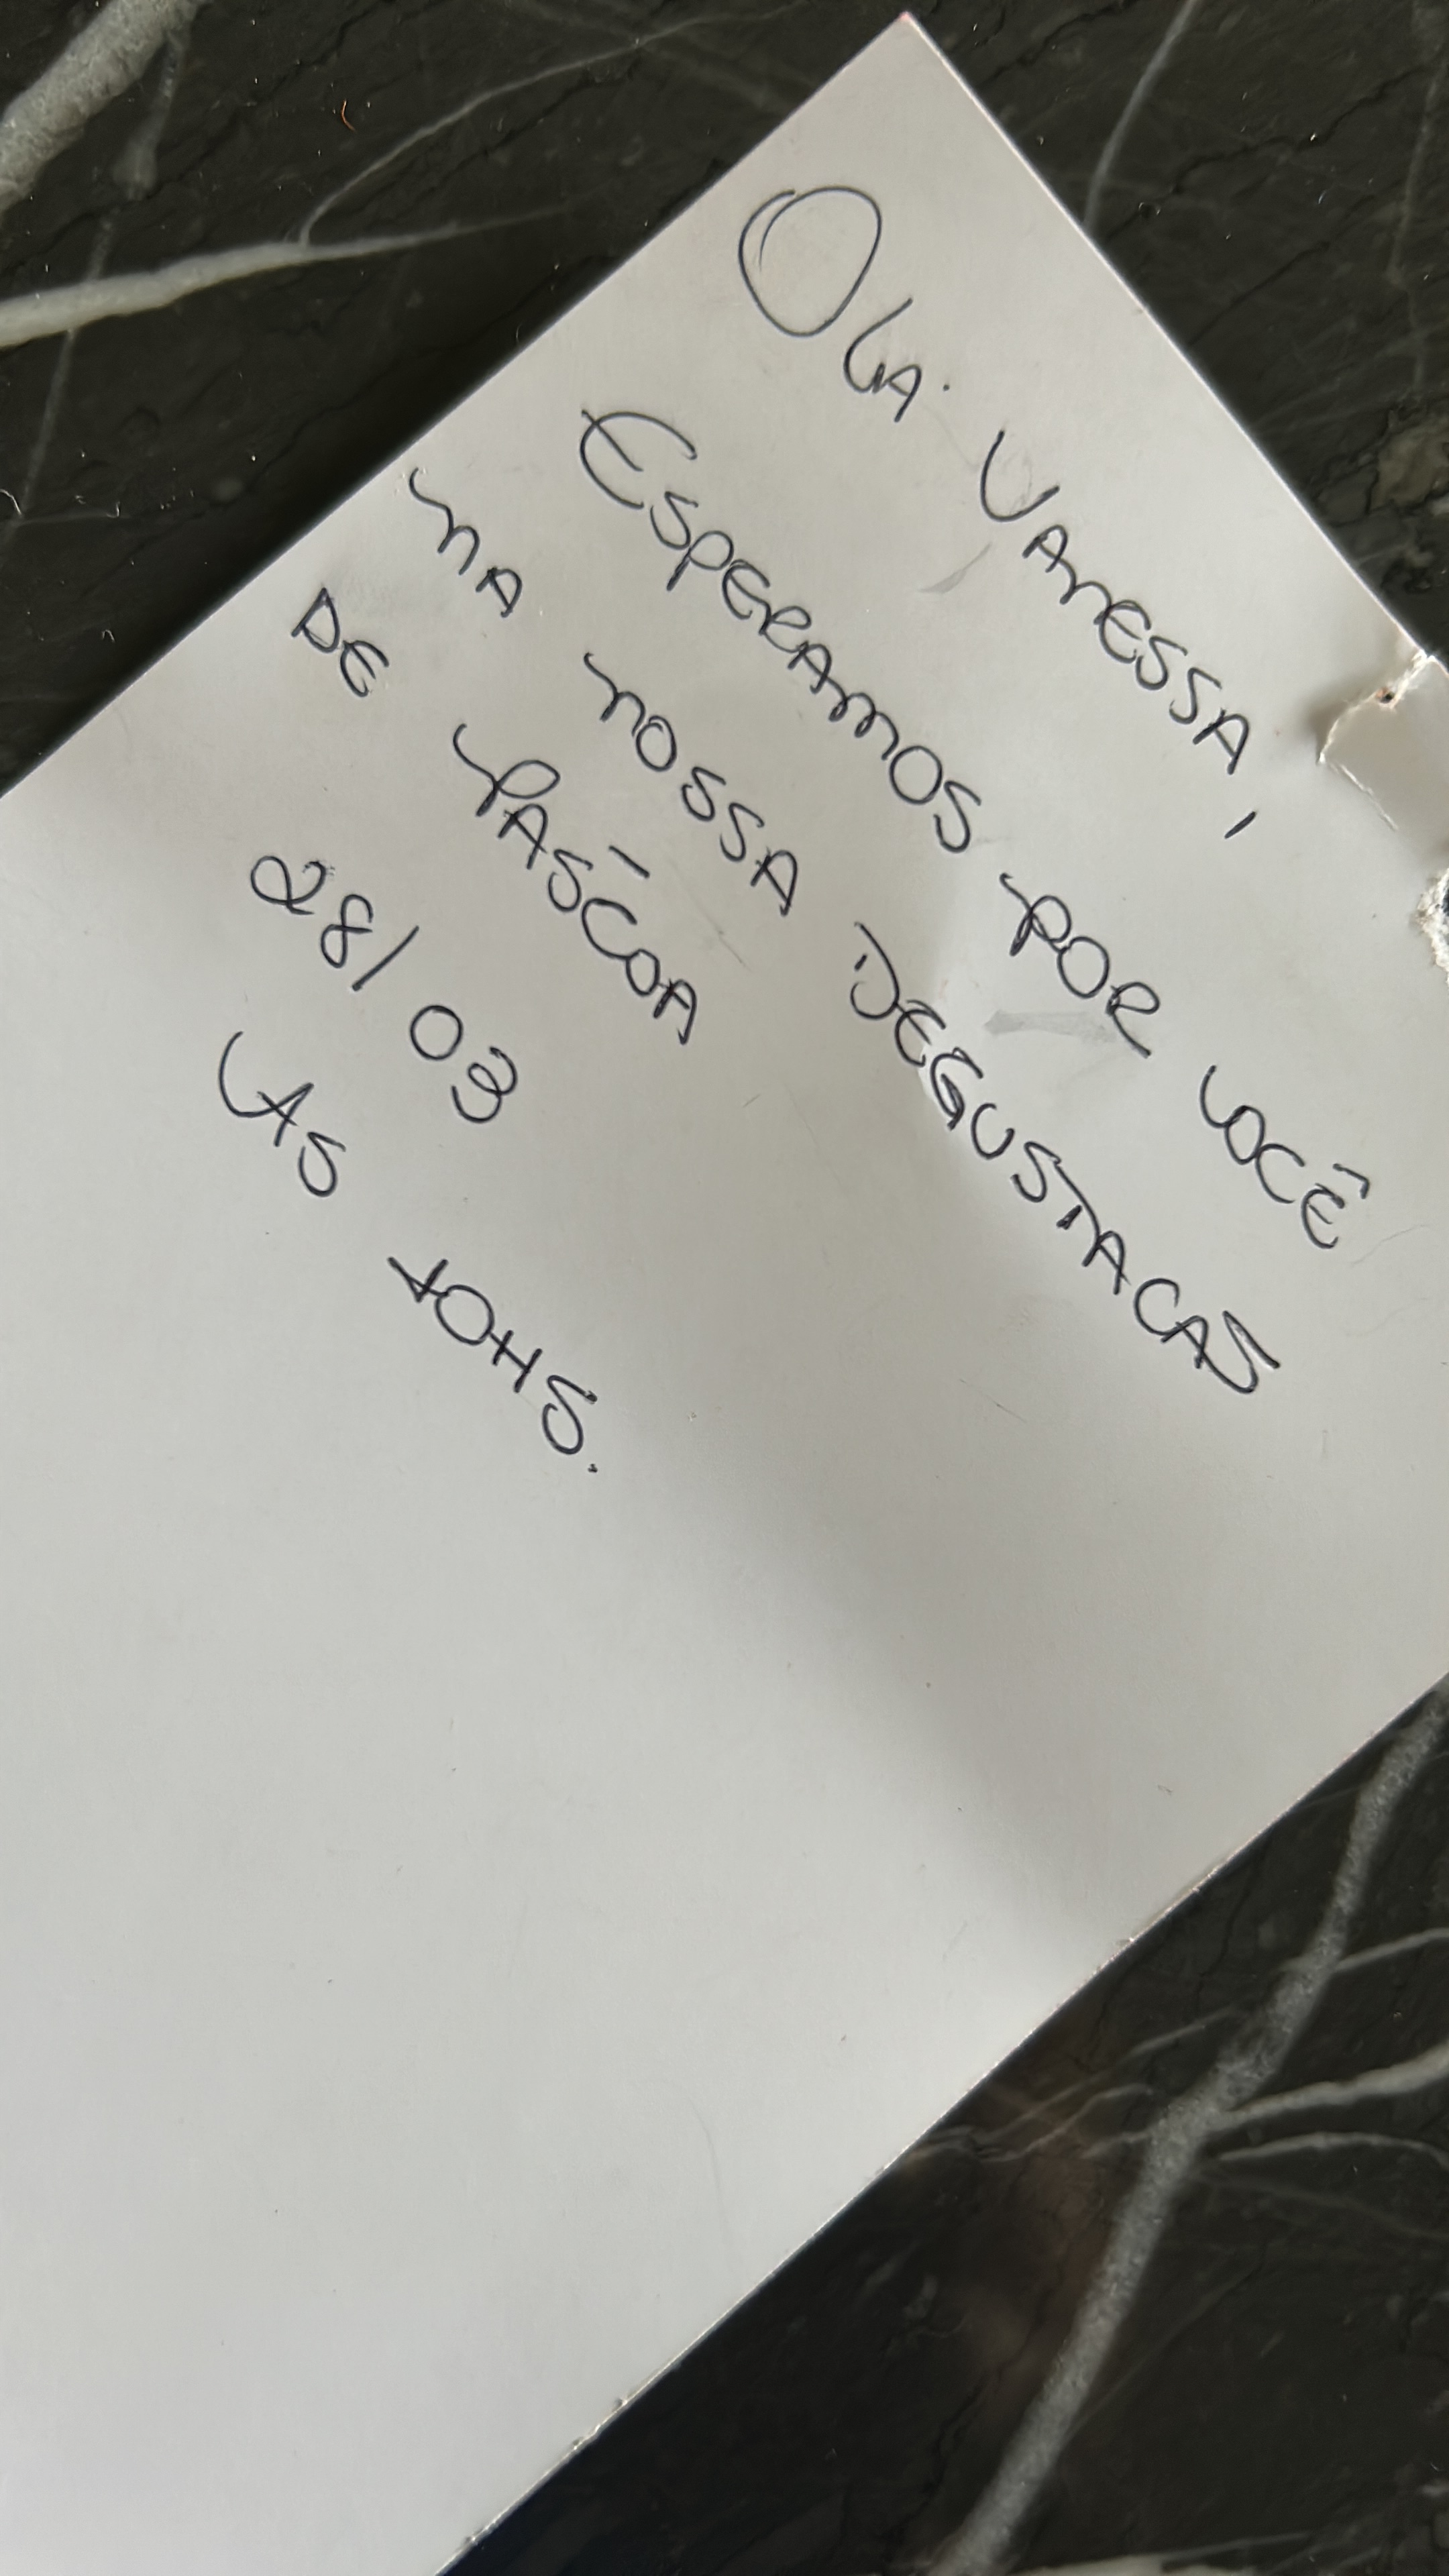 OLA. VANESSA,
ESPERAMOS POR VOCÊ
NA NOSSA DEGUSTACAS
DE PÁSCOA
28/03
AS 10HS.